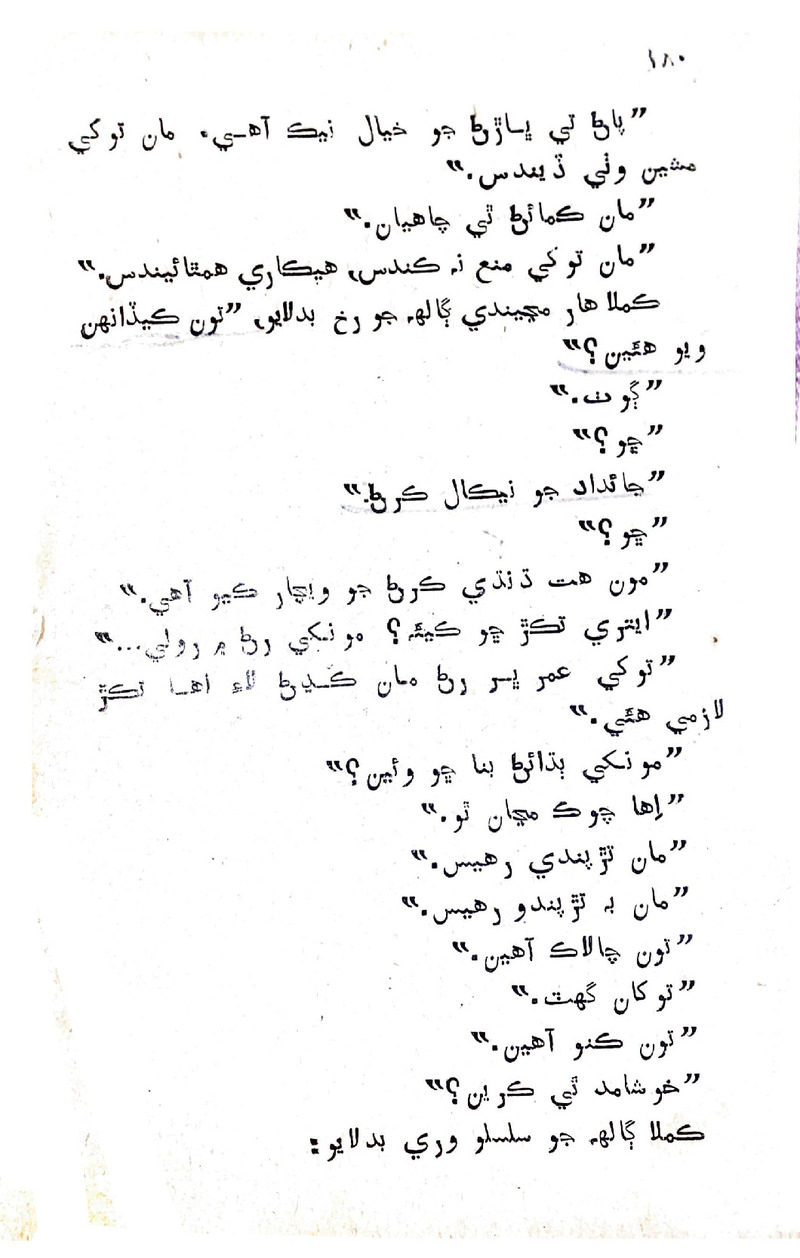 ١٨٠
”پاڻ تي ڀاڙڻ جو خيال نيڪ آهي. مان توکي
مشين وٺي ڏيندس.“
”مان ڪمائڻ ٿي چاهيان.“
”مان توکي منع نہ ڪندس، هيڪاري همٿائيندس.“
ڪملا هار مڃيندي ڳالهہ جو رخ بدلايو، ”تون ڪيڏانهن
ويو هئين؟“
”ڳوٺ.“
”ڇو؟“
”جائداد جو نيڪال ڪرڻ.“
”ڇو؟“
”مون هت ڌنڌي ڪرڻ جو ويچار ڪيو آهي.“
”ايتري تڪڙ ڇو ڪيئہ؟ مونکي رڻ ۾ رولي...“
”توکي عمر ڀر رڻ مان ڪڍڻ لاءِ اها تڪڙ
لازمي هئي.“
”مونکي ٻڌائڻ بنا ڇو وئين؟“
”اِها چوڪ مڃان ٿو.“
”مان تڙپندي رهيس.“
”مان بہ تڙپندو رهيس.“
”تون چالاڪ آهين.“
”توکان گهٽ.“
”تون ڪنو آهين.“
”خوشامد ٿي ڪرين؟“
ڪملا ڳالهہ جو سلسلو وري بدلايو: